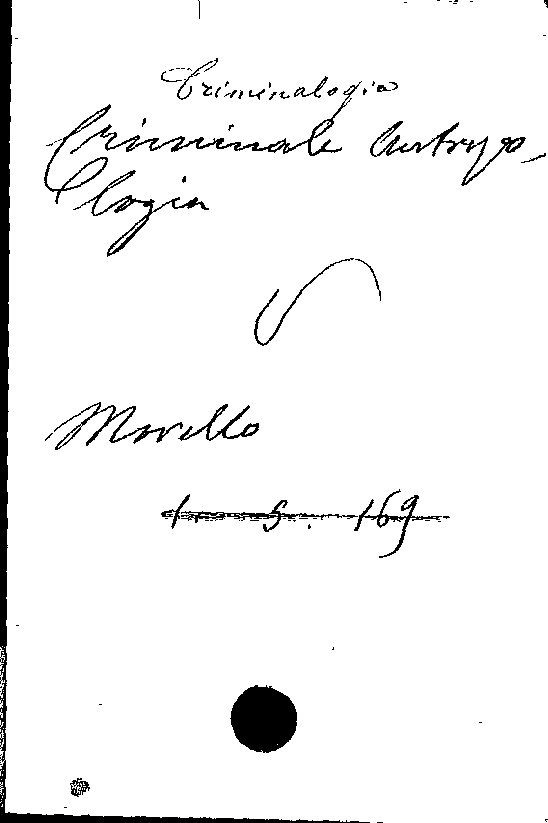 Criminalogia
Criminale Antropo
logia
Morello
1 5. 169